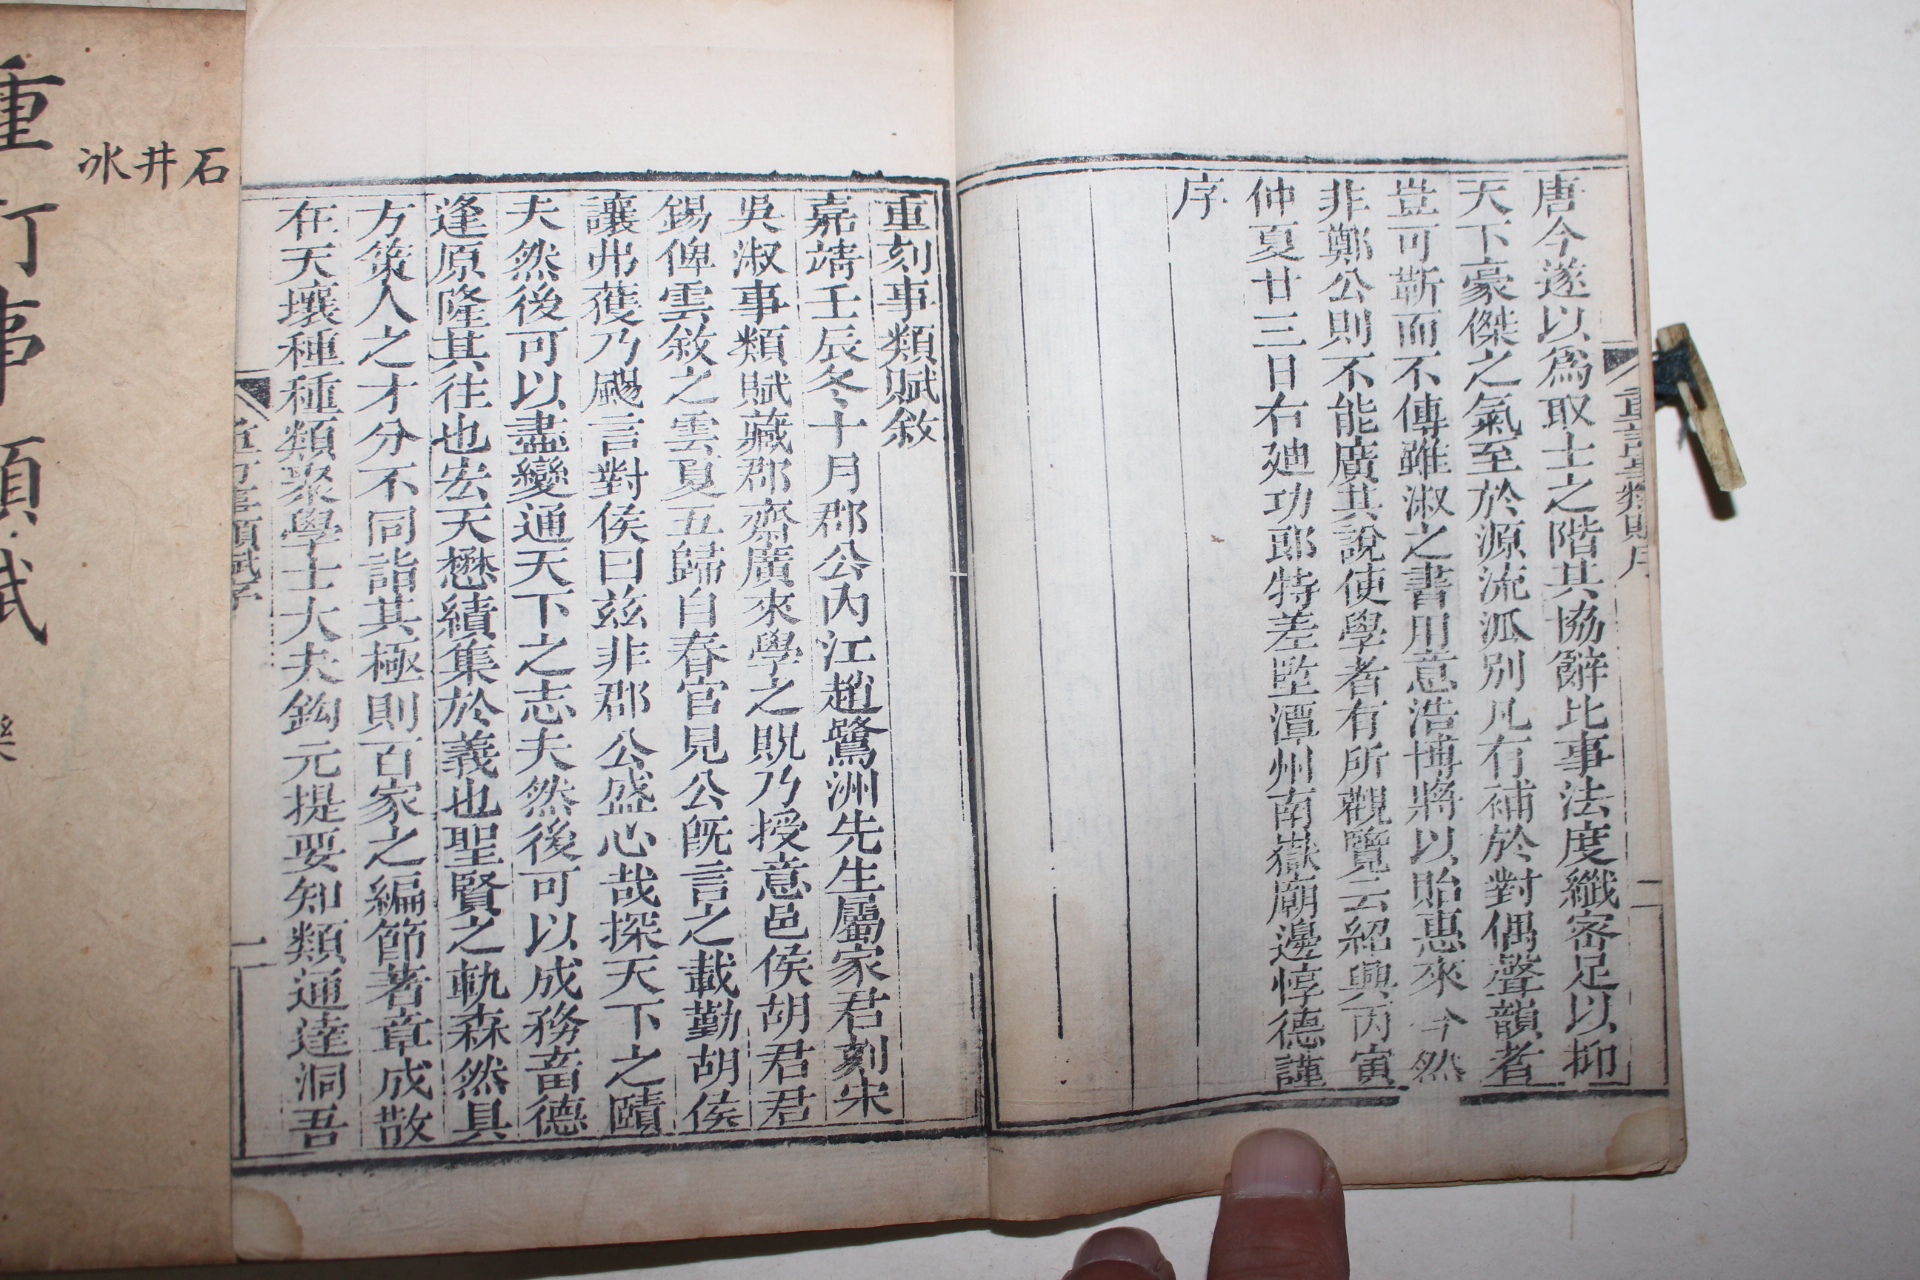 唐今遂以爲取士之階其協辭比事法度纖密足以抑
天下豪傑之氣至於源流派別凡有補於對偶聲韻者
豈可靳而不傳雖淑之書用意浩博將以貽惠來今然
非鄭公則不能廣其說使學者有所觀覽云紹興丙寅
仲夏廿三日右迪功郎特差監潭州南嶽廟邊惇德謹
序
重刻事類賦敘
嘉靖壬辰冬十月郡公內江趙鷺洲先生屬家君刻宋
吳淑事類賦藏郡齋廣來學之貺乃授意邑侯胡君君
錫俾雲敘之雲夏五歸自春官見公旣言之載勤胡侯
讓弗獲乃颺言對侯曰茲非郡公盛心哉探天下之賾
夫然後可以盡變通天下之志夫然後可以成務畜德
逢原隆其往也宏天懋績集於義也聖賢之軌森然具
方策人之才分不同詣其極則百家之編節著章成散
在天壤種種類聚學士大夫鈎元提要知類通達洞吾
重訂事類賦序
二
重訂事類賦序
一
石井冰
重訂事類賦
樂